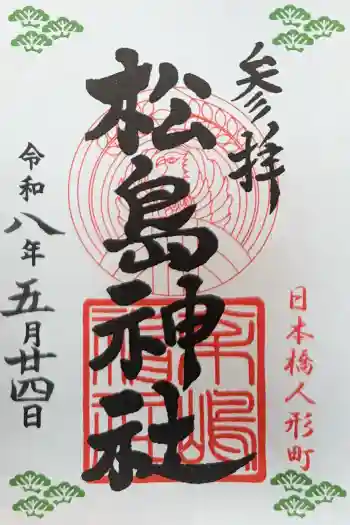 参拝
日本橋人形町
松島神社
令和八年五月廿四日